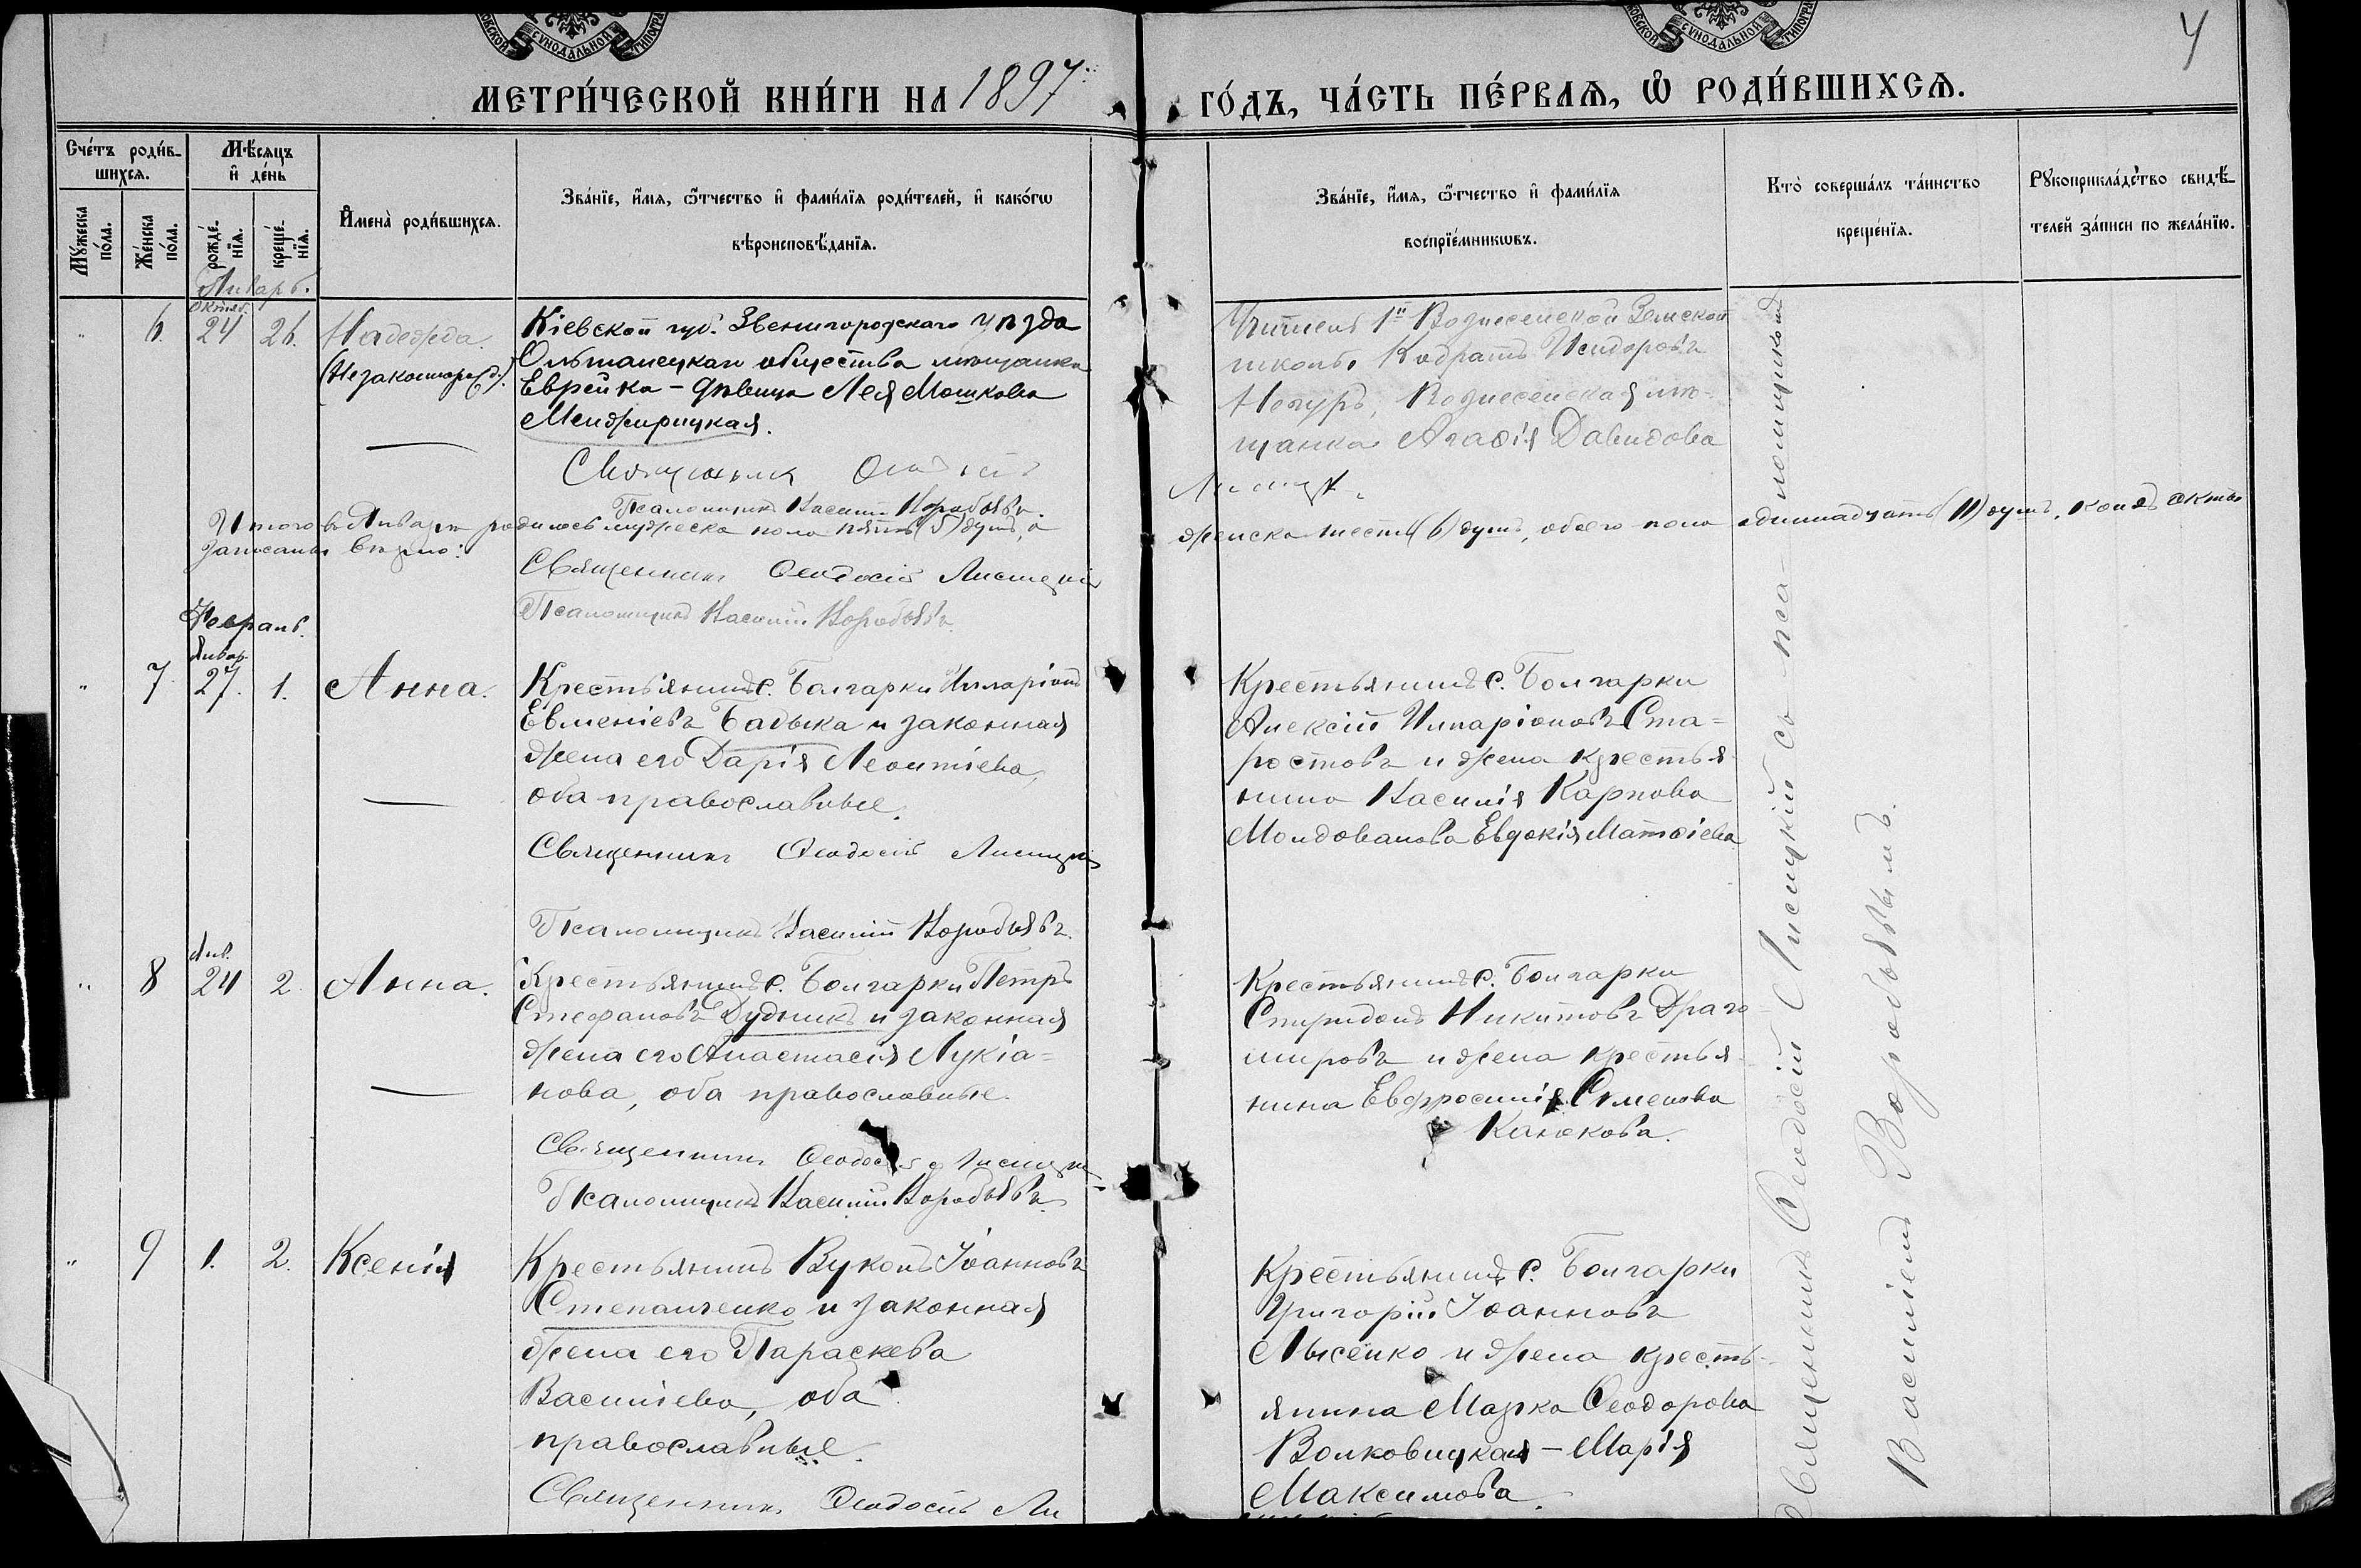 4
МЕТРИ́ЧЕСКОЙ КНИ́ГИ НА 1897
ГО́ДЪ, ЧА́СТЬ ПЕ́РВАЯ, Ѡ РОДИ́ВШИХСЯ.
Сче́тъ роди́в-
шихся.
Мѣ́сяцъ
и҆ де́нь
Мꙋ́жеска
по́ла.
Же́нска
по́ла.
рожде́-
нїя.
креще́-
нїя.
И҆мена̀ роди́вшихся.
Зва́нїе, и҆́мя, ѻ҆́тчество и҆ фами́лїя роди́телей, и҆ како́гѡ
вѣроисповѣ́данїя.
Зва́нїе, и҆́мя, ѻ҆́тчество и҆ фами́лїя
воспрїе́мникѡвъ.
Кто̀ соверша́лъ та́инство
креще́нїя.
Рꙋкоприкла́дство свидѣ́-
телей за́писи по жела́нїю.
Январь.
" 6. Октяб. 24 26. Надежда.
(Незаконнорожд.)
Кіевской губ. Звенигородскаго уѣзда
Ольшанецкаго общества мѣщанка
Еврейка - дѣвица Лея Мошкова
Менджирицкая.
Священникъ
Псаломщикъ Василій Воробьевъ.
Учитель 1й Вознесенской Земской
школы Кодратъ Исидоровъ
Вознесенская мѣ-
щанка Агаѳія Давидова
Итого въ Январѣ родилось мужеска пола пять (5) душъ, а
женска шесть (6) душъ, обоего пола одиннадцать (11) душъ, коихъ акты
записаны вѣрно:
Священникъ Ѳеодосій Лисицкій
Псаломщикъ Василій Воробьевъ
Февраль.
" 7 Январ. 27. 1. Анна.
Крестьянинъ с. Болгарки Илларіонъ
Евменіевъ Бадыка и законная
жена его Дарія Леонтіева,
оба православные.
Священникъ Ѳеодосій Лисицкій
Псаломщикъ Василій Воробьевъ.
Крестьянинъ с. Болгарки
Алексій Илларіоновъ Ста=
ростовъ и жена крестья-
нина Василія Карпова
Молдованова Евдокія Матѳіева
" 8 Янв. 24 2. Анна.
Крестьянинъ с. Болгарки Петръ
Стефановъ Дудникъ и законная
жена его Анастасія Лукіа=
нова, оба православные.
Священникъ Ѳеодосій Лисицкій
Псаломщикъ Василій Воробьевъ
Крестьянинъ с. Болгарки
Спиридонъ Никитовъ Драго-
мировъ и жена крестья-
нина Евфросинія Семенова
Канюкова.
" 9 1. 2. Ксенія
Крестьянинъ Вуколъ Іоанновъ
Степанченко и законная
жена его Параскева
Василіева, оба
православные.
Священникъ Ѳеодосій Ли
Крестьянинъ с. Болгарки
Григорій Іоанновъ
Лысенко и жена кресть-
янина Марка Ѳеодорова
Волковицкая - Марія
Максимова.
Священникъ Ѳеодосій Лисицкій съ псаломщикомъ
Василіемъ Воробьевымъ.